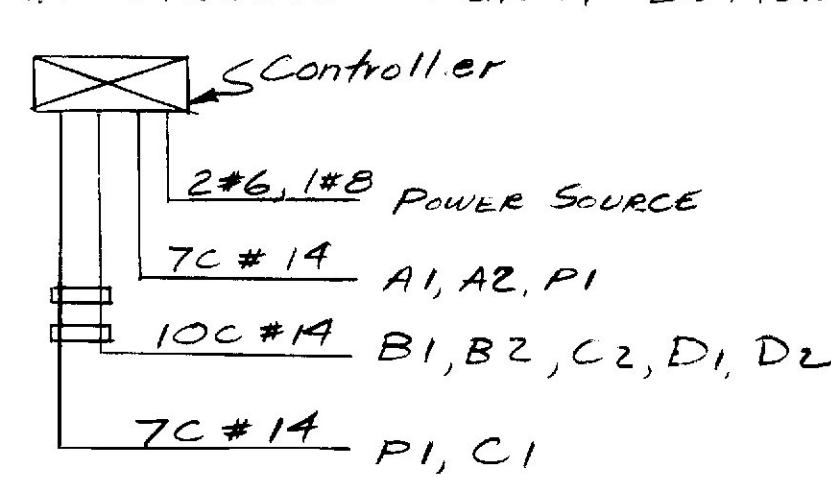 Controller
2#6, 1#8 POWER SOURCE
7C # 14 A1, A2, P1
10C #14 B1, B2, C2, D1, D2
7C # 14 P1, C1